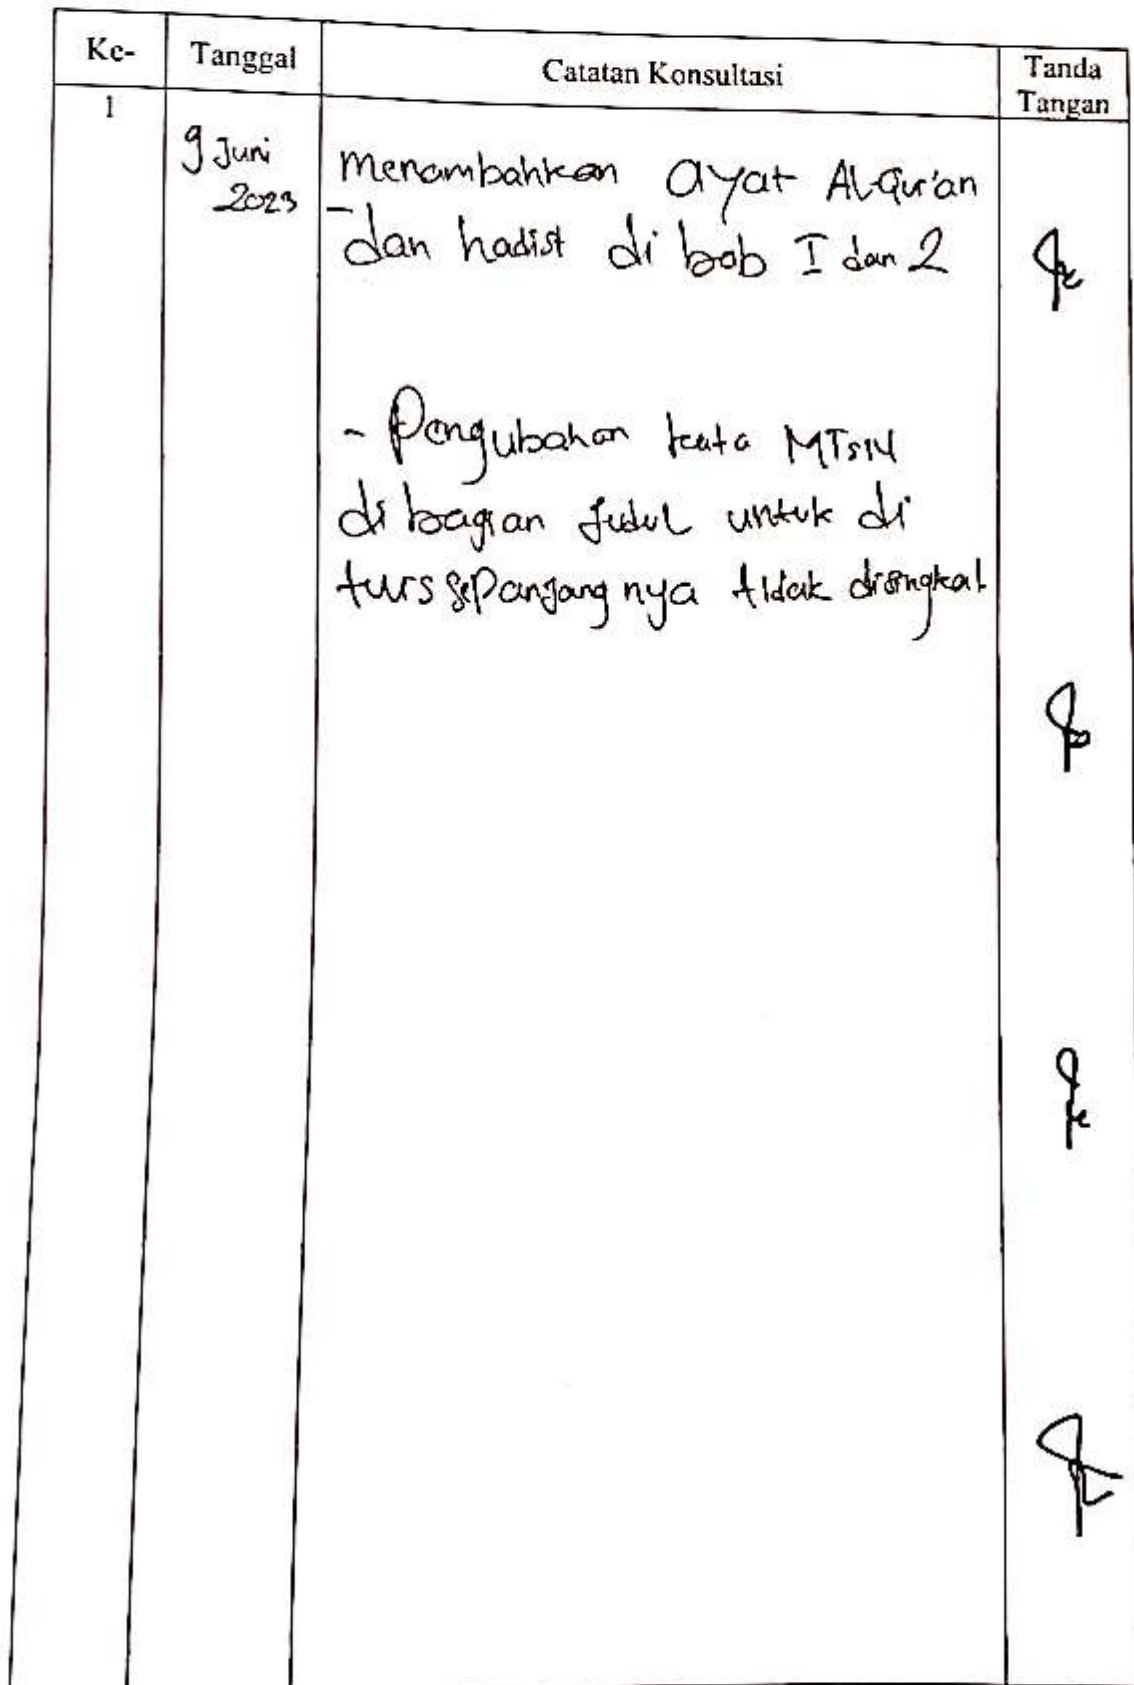 Ke- Tanggal Catatan Konsultasi Tanda Tangan
1
9 Juni
2023
menambahkan ayat Al-Qur'an
- dan hadist di bab I dan 2
- Pengubahan kata MTsN
di bagian judul untuk di
tulis sepanjang nya tidak disingkat